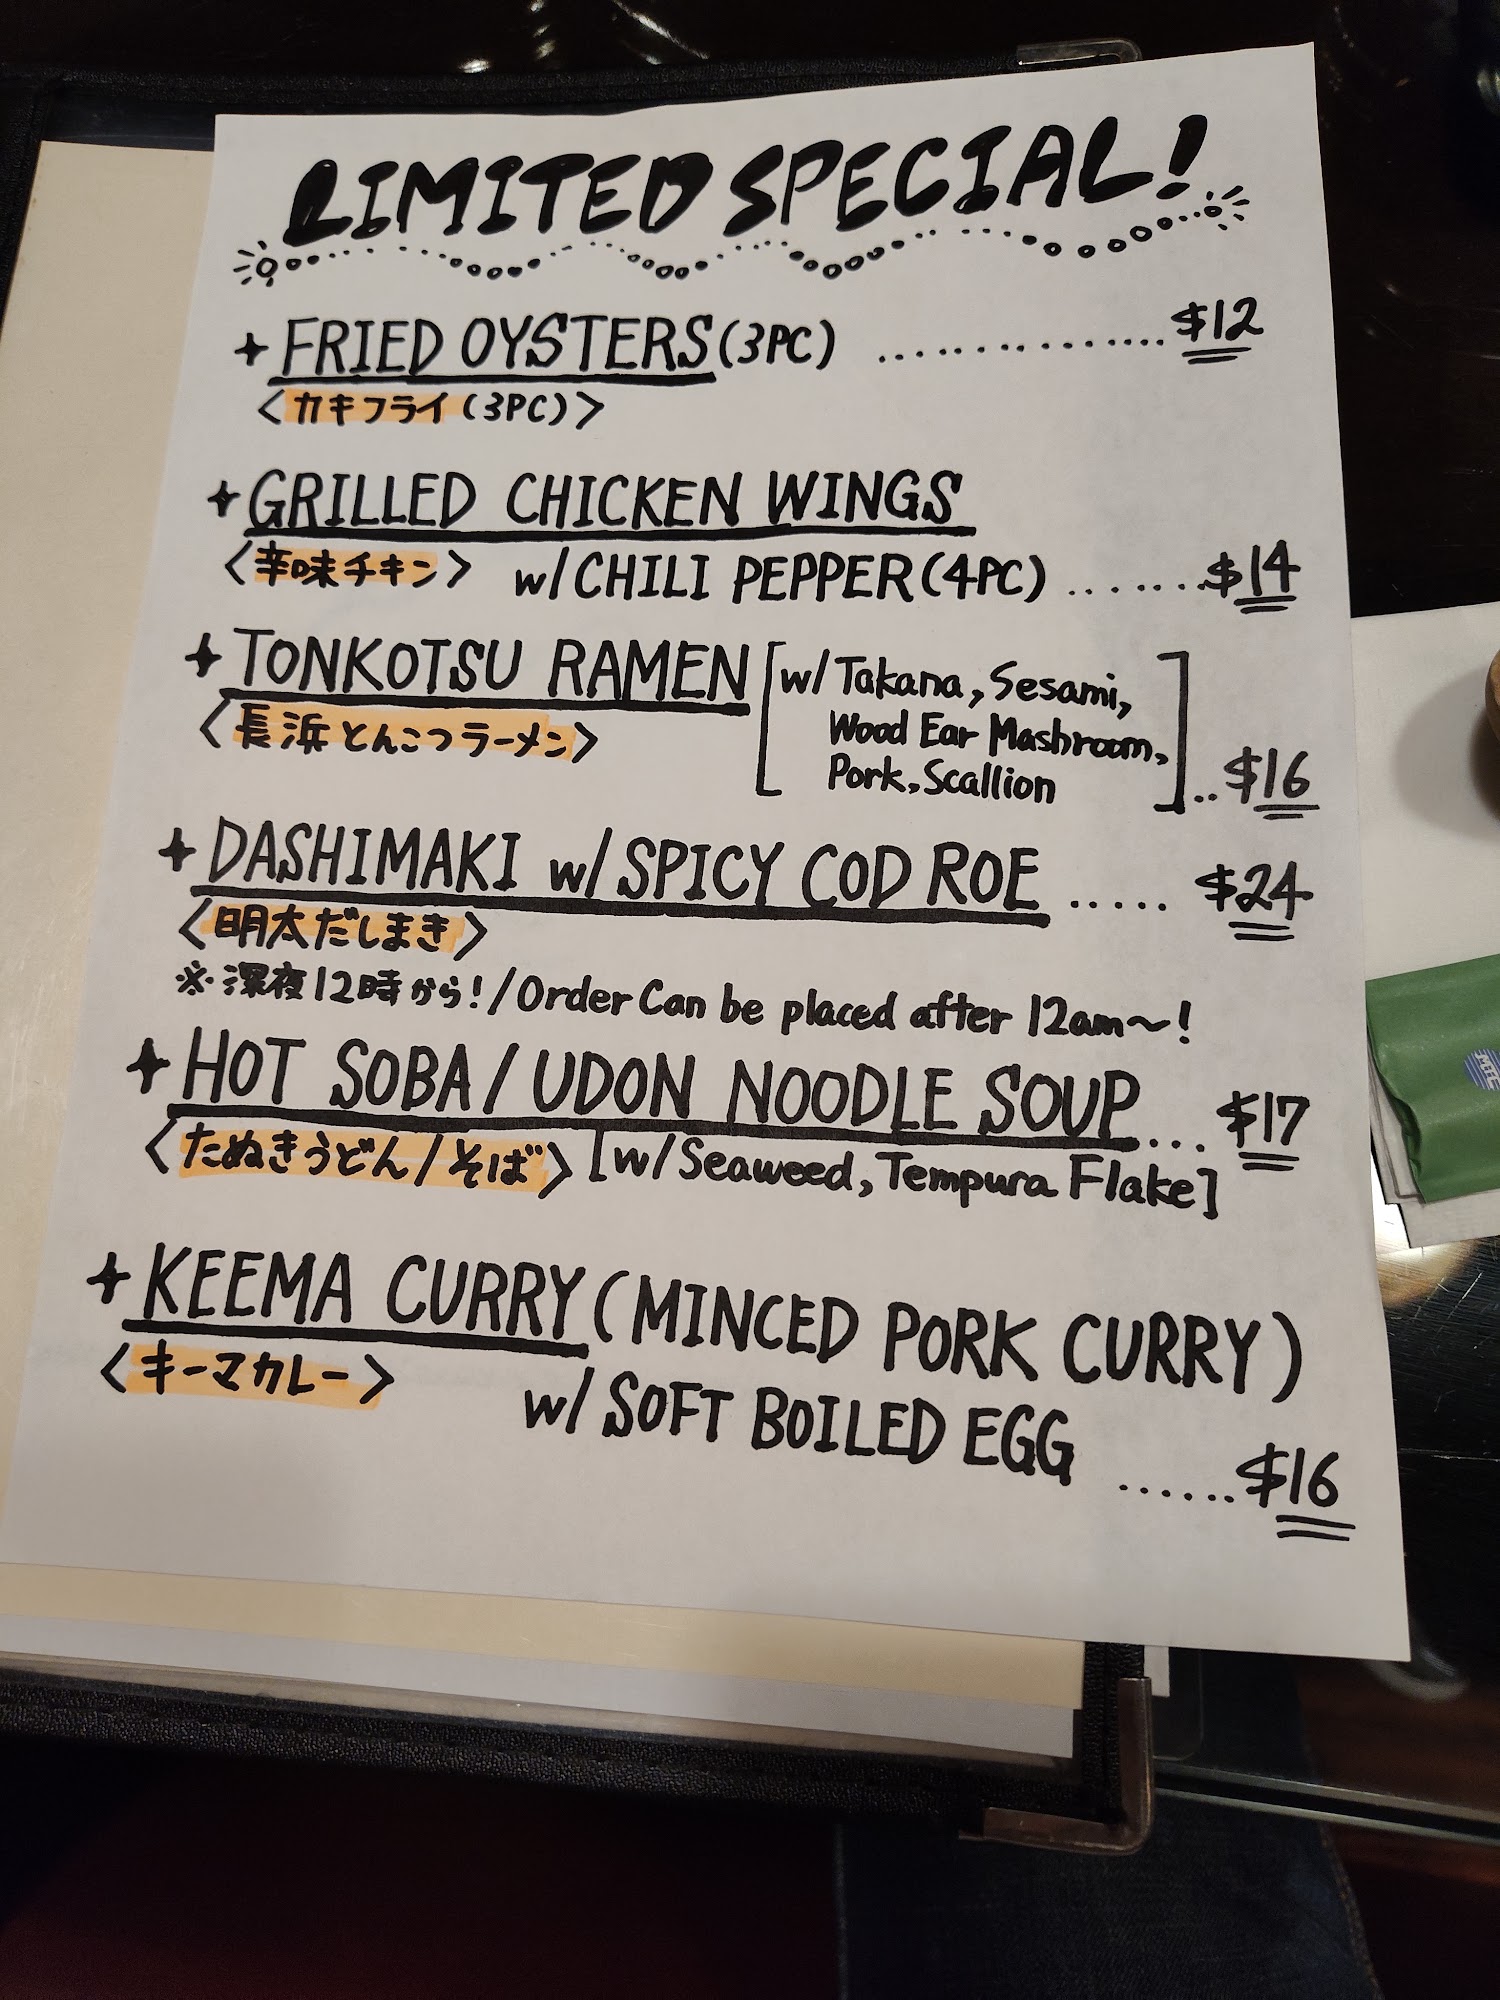 LIMITED SPECIAL!
+ FRIED OYSTERS (3PC) ................ $12
<カキフライ (3PC)>
+ GRILLED CHICKEN WINGS
<辛味チキン> w/ CHILI PEPPER (4PC) ........ $14
+ TONKOTSU RAMEN [w/ Takana, Sesami,
Wood Ear Mashroom,
<長浜とんこつラーメン>
Pork, Scallion] .. $16
+ DASHIMAKI w/ SPICY COD ROE ..... $24
<明太だしまき>
※深夜12時から! / Order Can be placed after 12am~!
+ HOT SOBA / UDON NOODLE SOUP ... $17
<たぬきうどん / そば> [w/ Seaweed, Tempura Flake]
+ KEEMA CURRY (MINCED PORK CURRY)
<キーマカレー> w/ SOFT BOILED EGG
...... $16